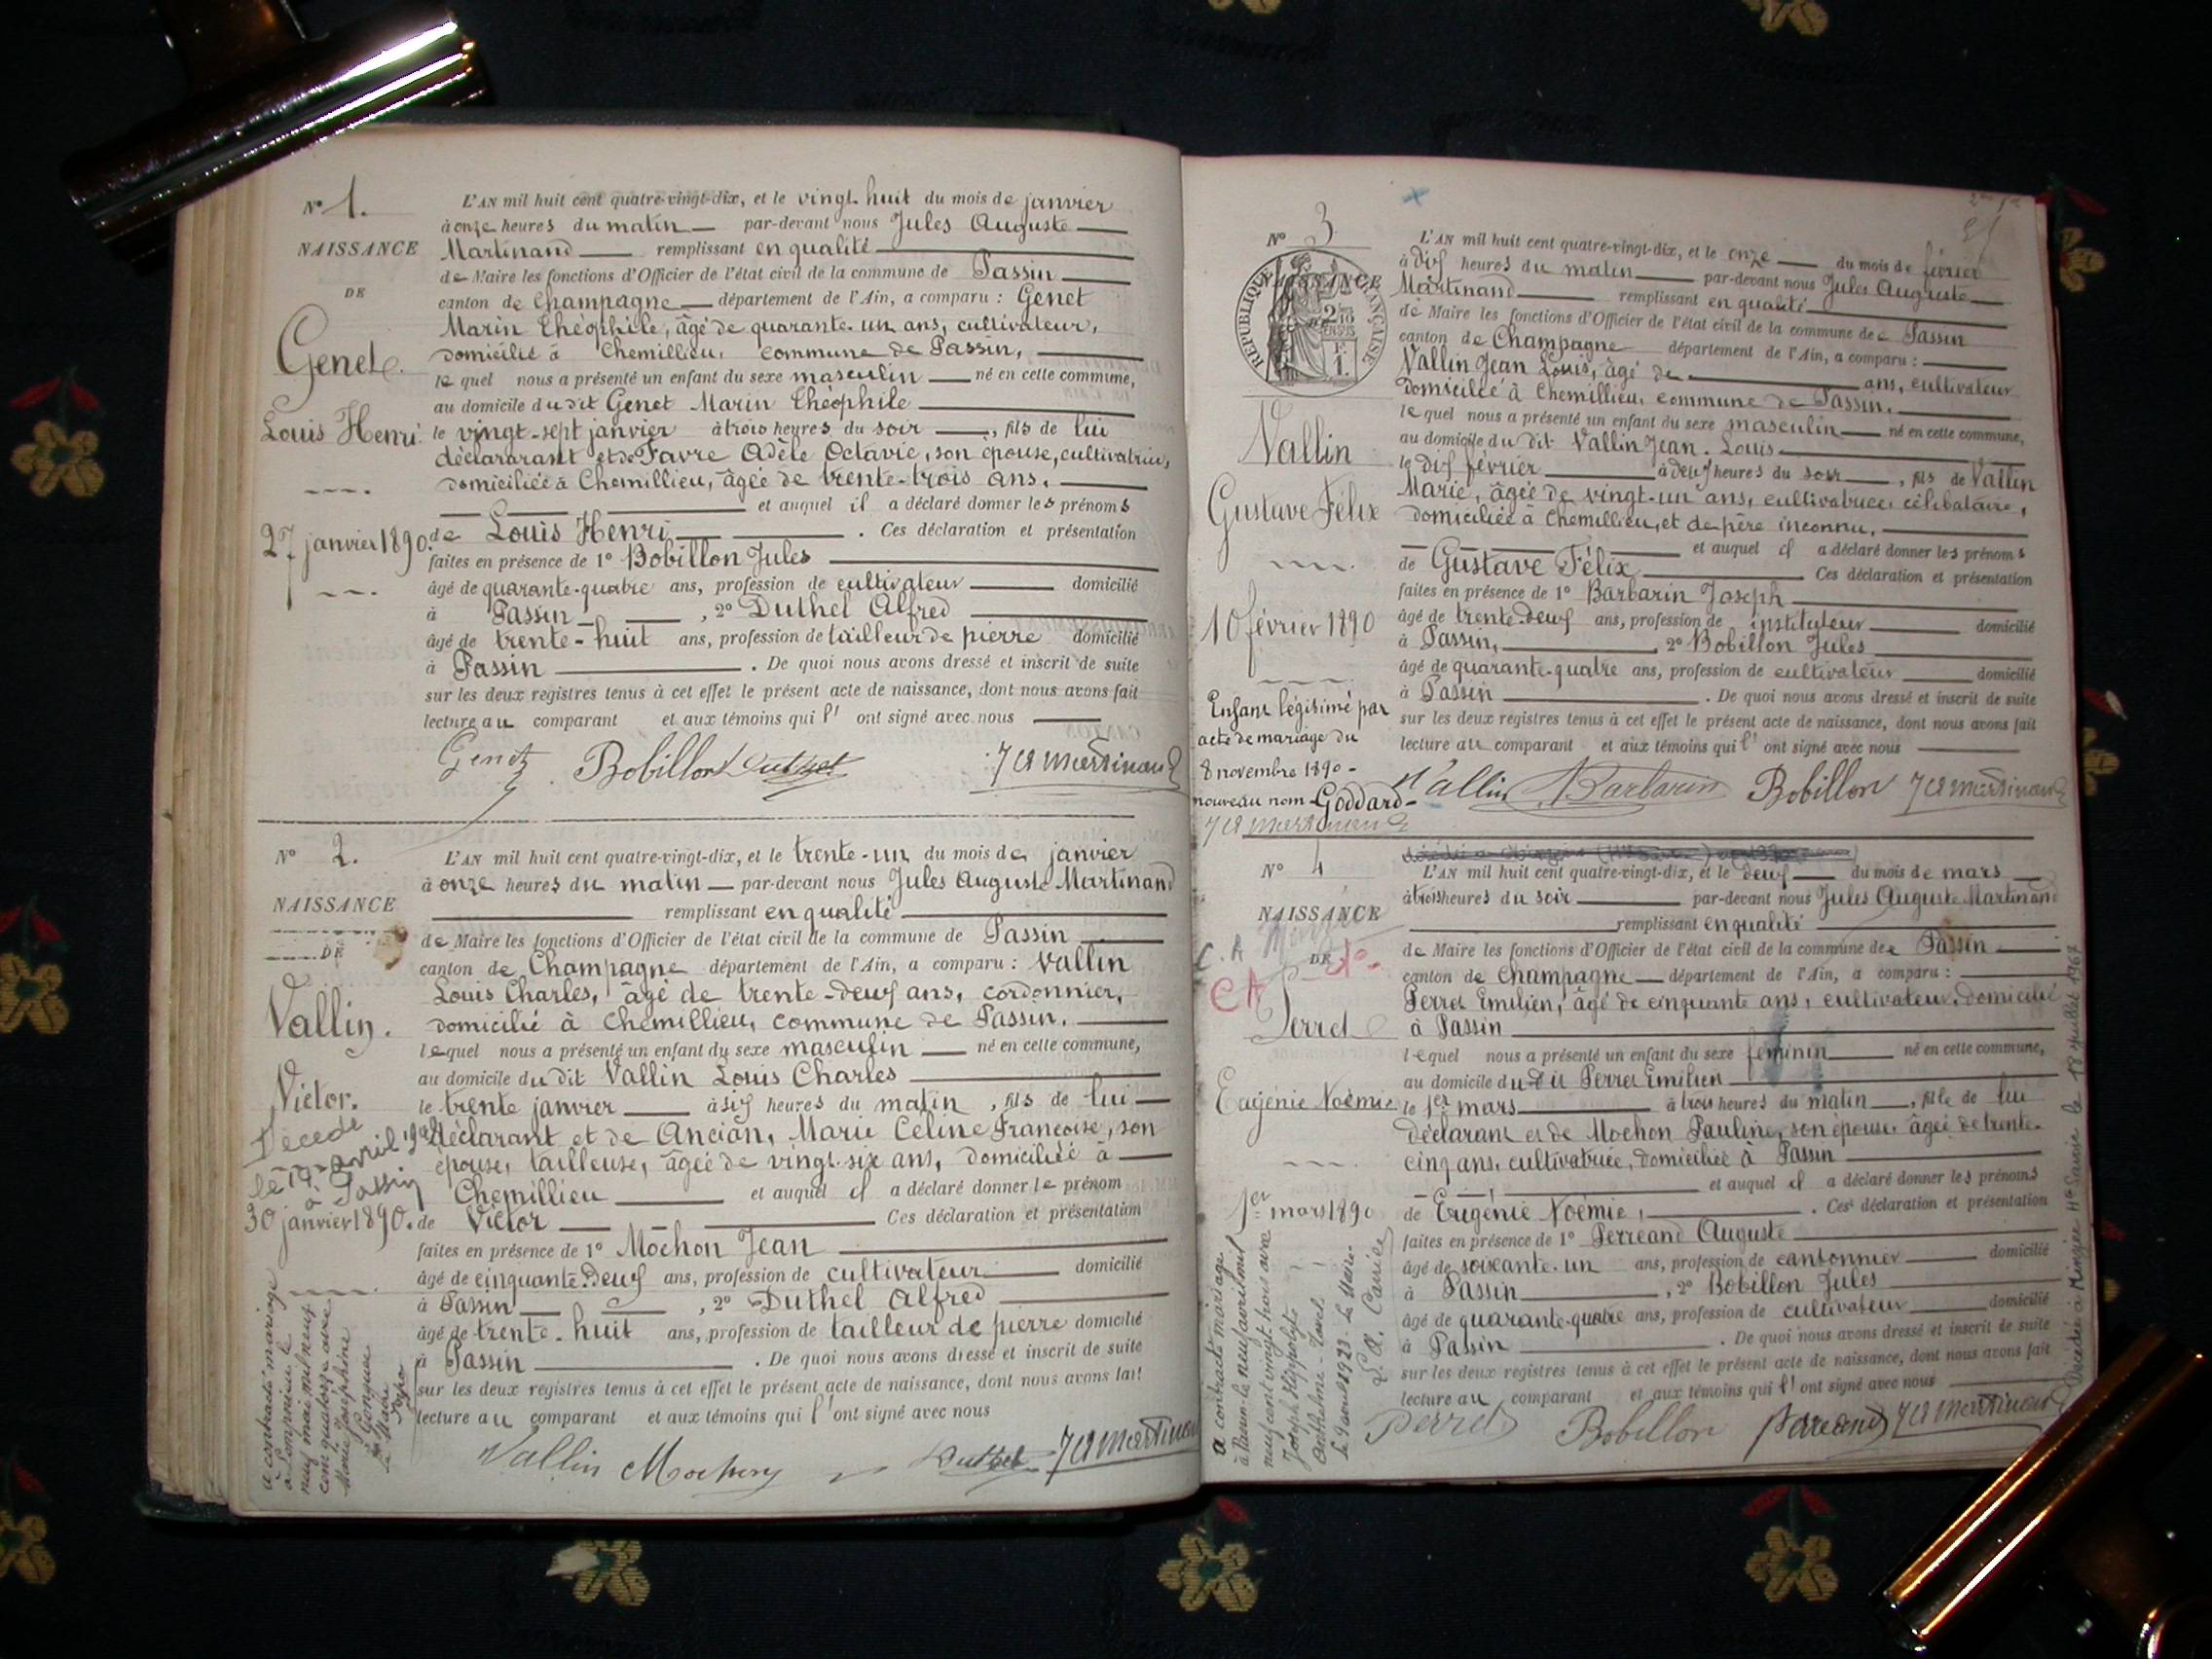 N° 1.
NAISSANCE
DE
Genet
Louis Henri.
27 janvier 1890.
L'AN mil huit cent quatre-vingt-dix, et le vingt-huit du mois de janvier
à onze heures du matin par-devant nous Jules Auguste
Martinand remplissant en qualité
de Maire les fonctions d'Officier de l'état civil de la commune de Passin
canton de Champagne département de l'Ain, a comparu : Genet
Marin Théophile, âgé de quarante-un ans, cultivateur,
domicilié à Chemillieu, commune de Passin,
lequel nous a présenté un enfant du sexe masculin né en cette commune,
au domicile du dit Genet Marin Théophile
le vingt-sept janvier à trois heures du soir, fils de lui
déclararant et de Favre Adèle Octavie, son épouse, cultivatrice,
domiciliée à Chemillieu, âgée de trente-trois ans.
et auquel il a déclaré donner les prénoms
de Louis Henri. Ces déclaration et présentation
faites en présence de 1° Bobillon Jules
âgé de quarante-quatre ans, profession de cultivateur domicilié
à Passin, 2° Duthel Alfred
âgé de trente-huit ans, profession de tailleur de pierre domicilié
à Passin. De quoi nous avons dressé et inscrit de suite
sur les deux registres tenus à cet effet le présent acte de naissance, dont nous avons fait
lecture au comparant et aux témoins qui l' ont signé avec nous
Genet Bobillon Duthel J A Martinand
N° 2.
NAISSANCE
DE
Vallin.
Victor.
Décédé
à Passin
30 janvier 1890.
a contracté mariage
L'AN mil huit cent quatre-vingt-dix, et le trente-un du mois de janvier
à onze heures du matin par-devant nous Jules Auguste Martinand
remplissant en qualité
de Maire les fonctions d'Officier de l'état civil de la commune de Passin
canton de Champagne département de l'Ain, a comparu : Vallin
Louis Charles, âgé de trente-deux ans, cordonnier,
domicilié à Chemillieu, commune de Passin.
lequel nous a présenté un enfant du sexe masculin né en cette commune,
au domicile du dit Vallin Louis Charles
le trente janvier à six heures du matin, fils de lui
déclarant et de Ancian, Marie Céline Françoise, son
épouse, tailleuse, âgée de vingt-six ans, domiciliée à
Chemillieu et auquel il a déclaré donner le prénom
de Victor Ces déclaration et présentation
faites en présence de 1° Mochon Jean
âgé de cinquante-deux ans, profession de cultivateur domicilié
à Passin, 2° Duthel Alfred
âgé de trente-huit ans, profession de tailleur de pierre domicilié
à Passin. De quoi nous avons dressé et inscrit de suite
sur les deux registres tenus à cet effet le présent acte de naissance, dont nous avons fait
lecture au comparant et aux témoins qui l' ont signé avec nous
Vallin Mochon Duthel J A Martinand
N° 3
NAISSANCE
REPUBLIQUE FRANÇAISE
Vallin
Gustave Félix
10 février 1890
Enfant légitimé par
acte de mariage du
8 novembre 1890 -
nouveau nom - Goddard -
J A Martinand
L'AN mil huit cent quatre-vingt-dix, et le onze du mois de février
à dix heures du matin par-devant nous Jules Auguste
Martinand remplissant en qualité
de Maire les fonctions d'Officier de l'état civil de la commune de Passin
canton de Champagne département de l'Ain, a comparu :
Vallin Jean Louis, âgé de ans, cultivateur
domicilié à Chemillieu, commune de Passin.
lequel nous a présenté un enfant du sexe masculin né en cette commune,
au domicile du dit Vallin Jean-Louis
le dix février à deux heures du soir, fils de Vallin
Marie, âgée de vingt-un ans, cultivatrice, célibataire,
domiciliée à Chemillieu, et de père inconnu,
et auquel il a déclaré donner les prénoms
de Gustave Félix Ces déclaration et présentation
faites en présence de 1° Barbarin Joseph
âgé de trente-deux ans, profession de instituteur domicilié
à Passin, 2° Bobillon Jules
âgé de quarante-quatre ans, profession de cultivateur domicilié
à Passin. De quoi nous avons dressé et inscrit de suite
sur les deux registres tenus à cet effet le présent acte de naissance, dont nous avons fait
lecture au comparant et aux témoins qui l' ont signé avec nous
Vallin Barbarin Bobillon J A Martinand
N° 4
NAISSANCE
DE
C.A
CA
Perret
Eugénie Noémie
1er mars 1890
a contracté mariage
L'AN mil huit cent quatre-vingt-dix, et le deux du mois de mars
à trois heures du soir par-devant nous Jules Auguste Martinand
remplissant en qualité
de Maire les fonctions d'Officier de l'état civil de la commune de Passin
canton de Champagne département de l'Ain, a comparu :
Perret Emilien, âgé de cinquante ans, cultivateur, domicilié
à Passin
lequel nous a présenté un enfant du sexe féminin né en cette commune,
au domicile du dit Perret Emilien
le 1er mars à trois heures du matin, fille de lui
déclarant et de Mochon Pauline, son épouse, âgée de trente-
cinq ans, cultivatrice, domiciliée à Passin
et auquel il a déclaré donner les prénoms
de Eugénie Noémie. Ces déclaration et présentation
faites en présence de 1° Perreand Auguste
âgé de soixante-un ans, profession de cantonnier domicilié
à Passin, 2° Bobillon Jules
âgé de quarante-quatre ans, profession de cultivateur domicilié
à Passin. De quoi nous avons dressé et inscrit de suite
sur les deux registres tenus à cet effet le présent acte de naissance, dont nous avons fait
lecture au comparant et aux témoins qui l' ont signé avec nous
Perret Bobillon J A Martinand
Décédée à Minzier Hte Savoie le 18 juillet 1967